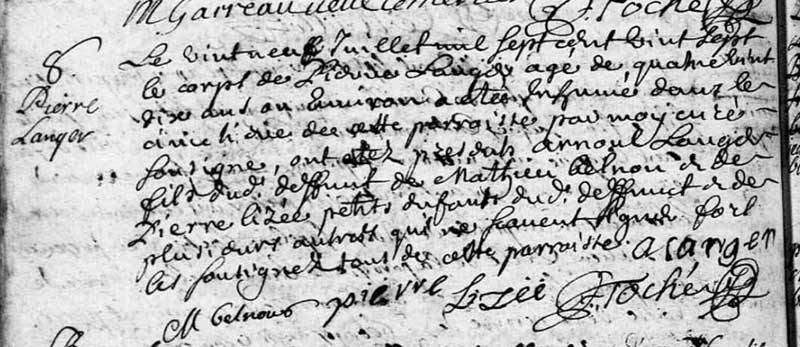 M Garreau J. Toché
8.
Pierre
Langer
Le vintneuf Juillet mil sept cent vint sept
le corps de Pierre Langer age de quatre vint
dix ans ou Environ a ete Inhumé dans le
cimetiere de cette parroisse par moy curé
soutigné, ont etez presents arnoul Langer
fils dud. deffunt de Mathieu belnou & de
Pierre lizée petits enfants dud. deffunct & de
plusieurs autres qui ne scavent signer fort
les soutignez tous de cette parroisse. a langer
M belnous pierre Lizéé J. Toché